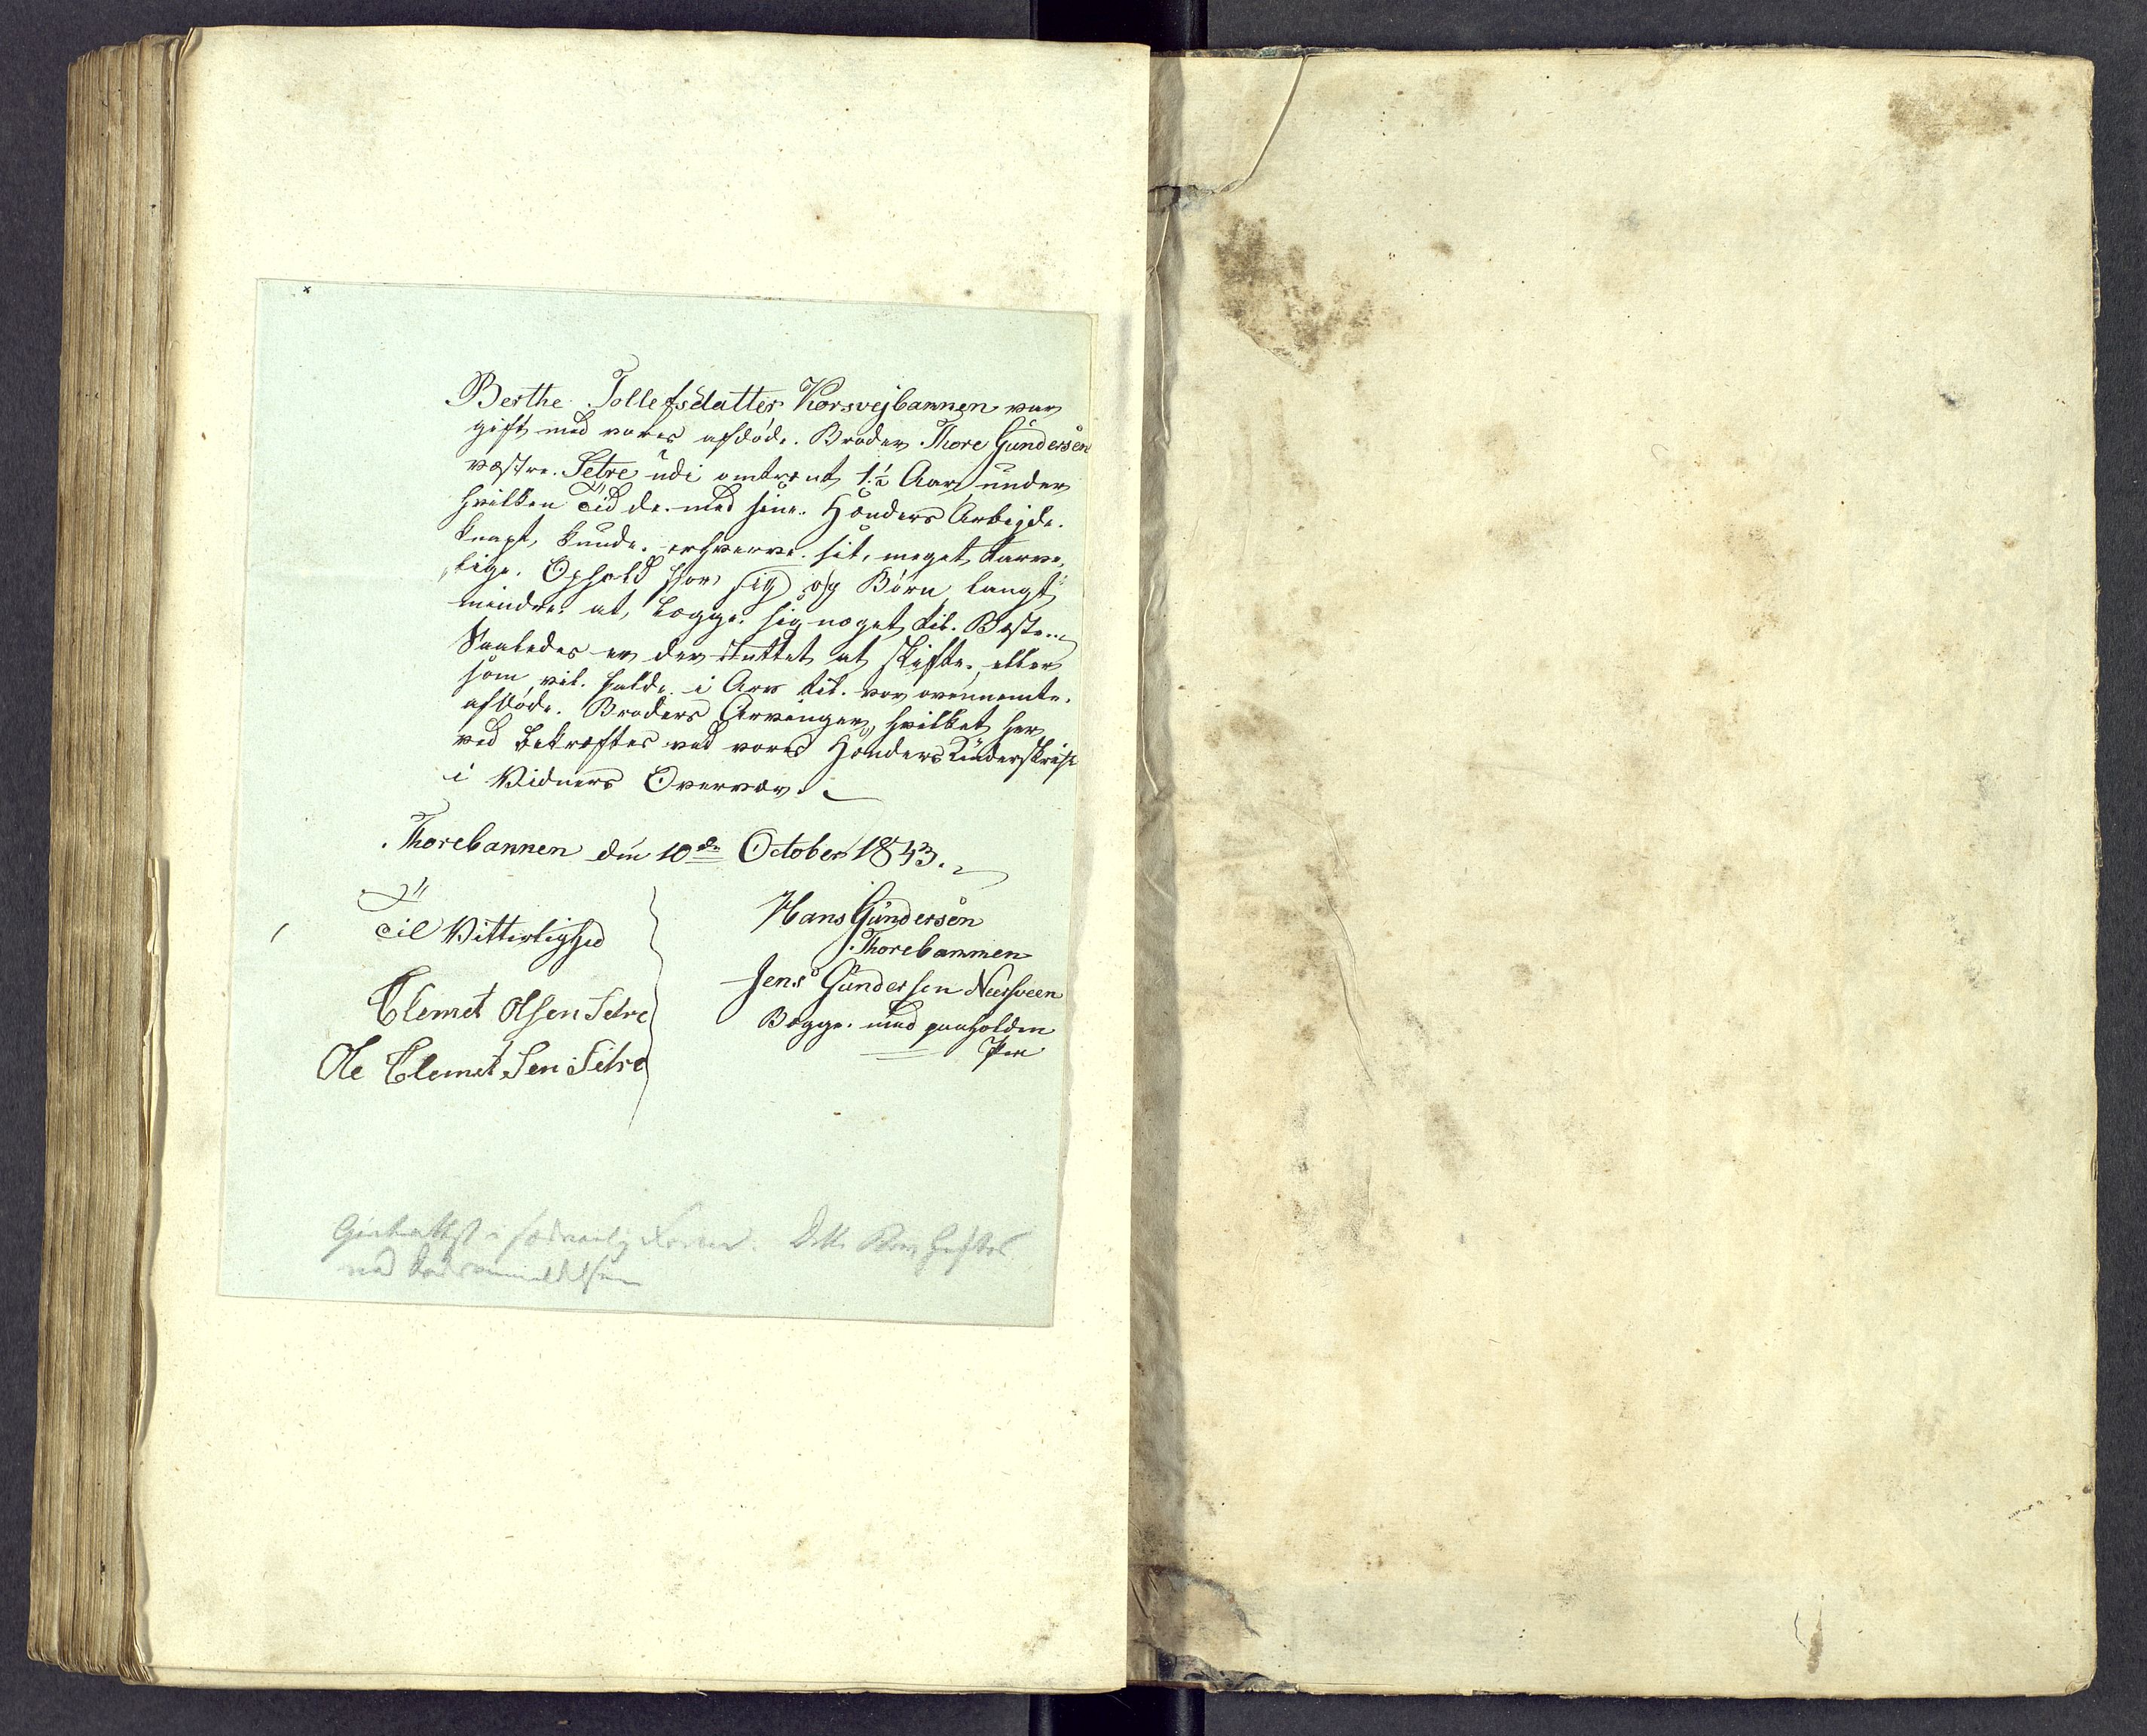 Berthe Tollefsdatter Korsvejbannen var
gift med vores afdöde Broder Thore Gündersen
vestre Setre udi omtrent 1½ Aar, under
hvilken Tid de med sine Hænders Arbejde
knapt kunde erhverve sit meget tarve,
lige Ophold for sig og Börn, langt
mindre at lægge sig noget til Beste.
Saaledes er der intet at skifte, eller
som vil falde i Arv til vor ovennemte
afdöde Broders Arvinger, hvilket her,
ved bekræftes ved vores Hænders Underskrift
i Vidners Overvær.
Thorebannen din 10de October 1843.
Til Vitterlighed
Clemet Olsen Setre
Ole Clemet Sen Setre
Hans Gündersen
Thorebannen
Jens Gündersen Neersveen
Begge med paaholden
Pen
i Dette
ved